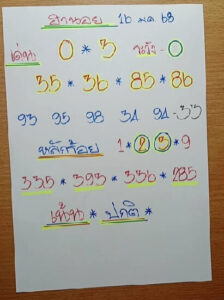 ฮานอย 16 มค 68
เด่น 0 * 3 หวัง - 0
35 * 36 * 85 * 86
93 95 98 34 94 - 33
หลักร้อย 1 * 2 3 * 9
335 * 393 * 336 * 285
เน้น * ปกติ *